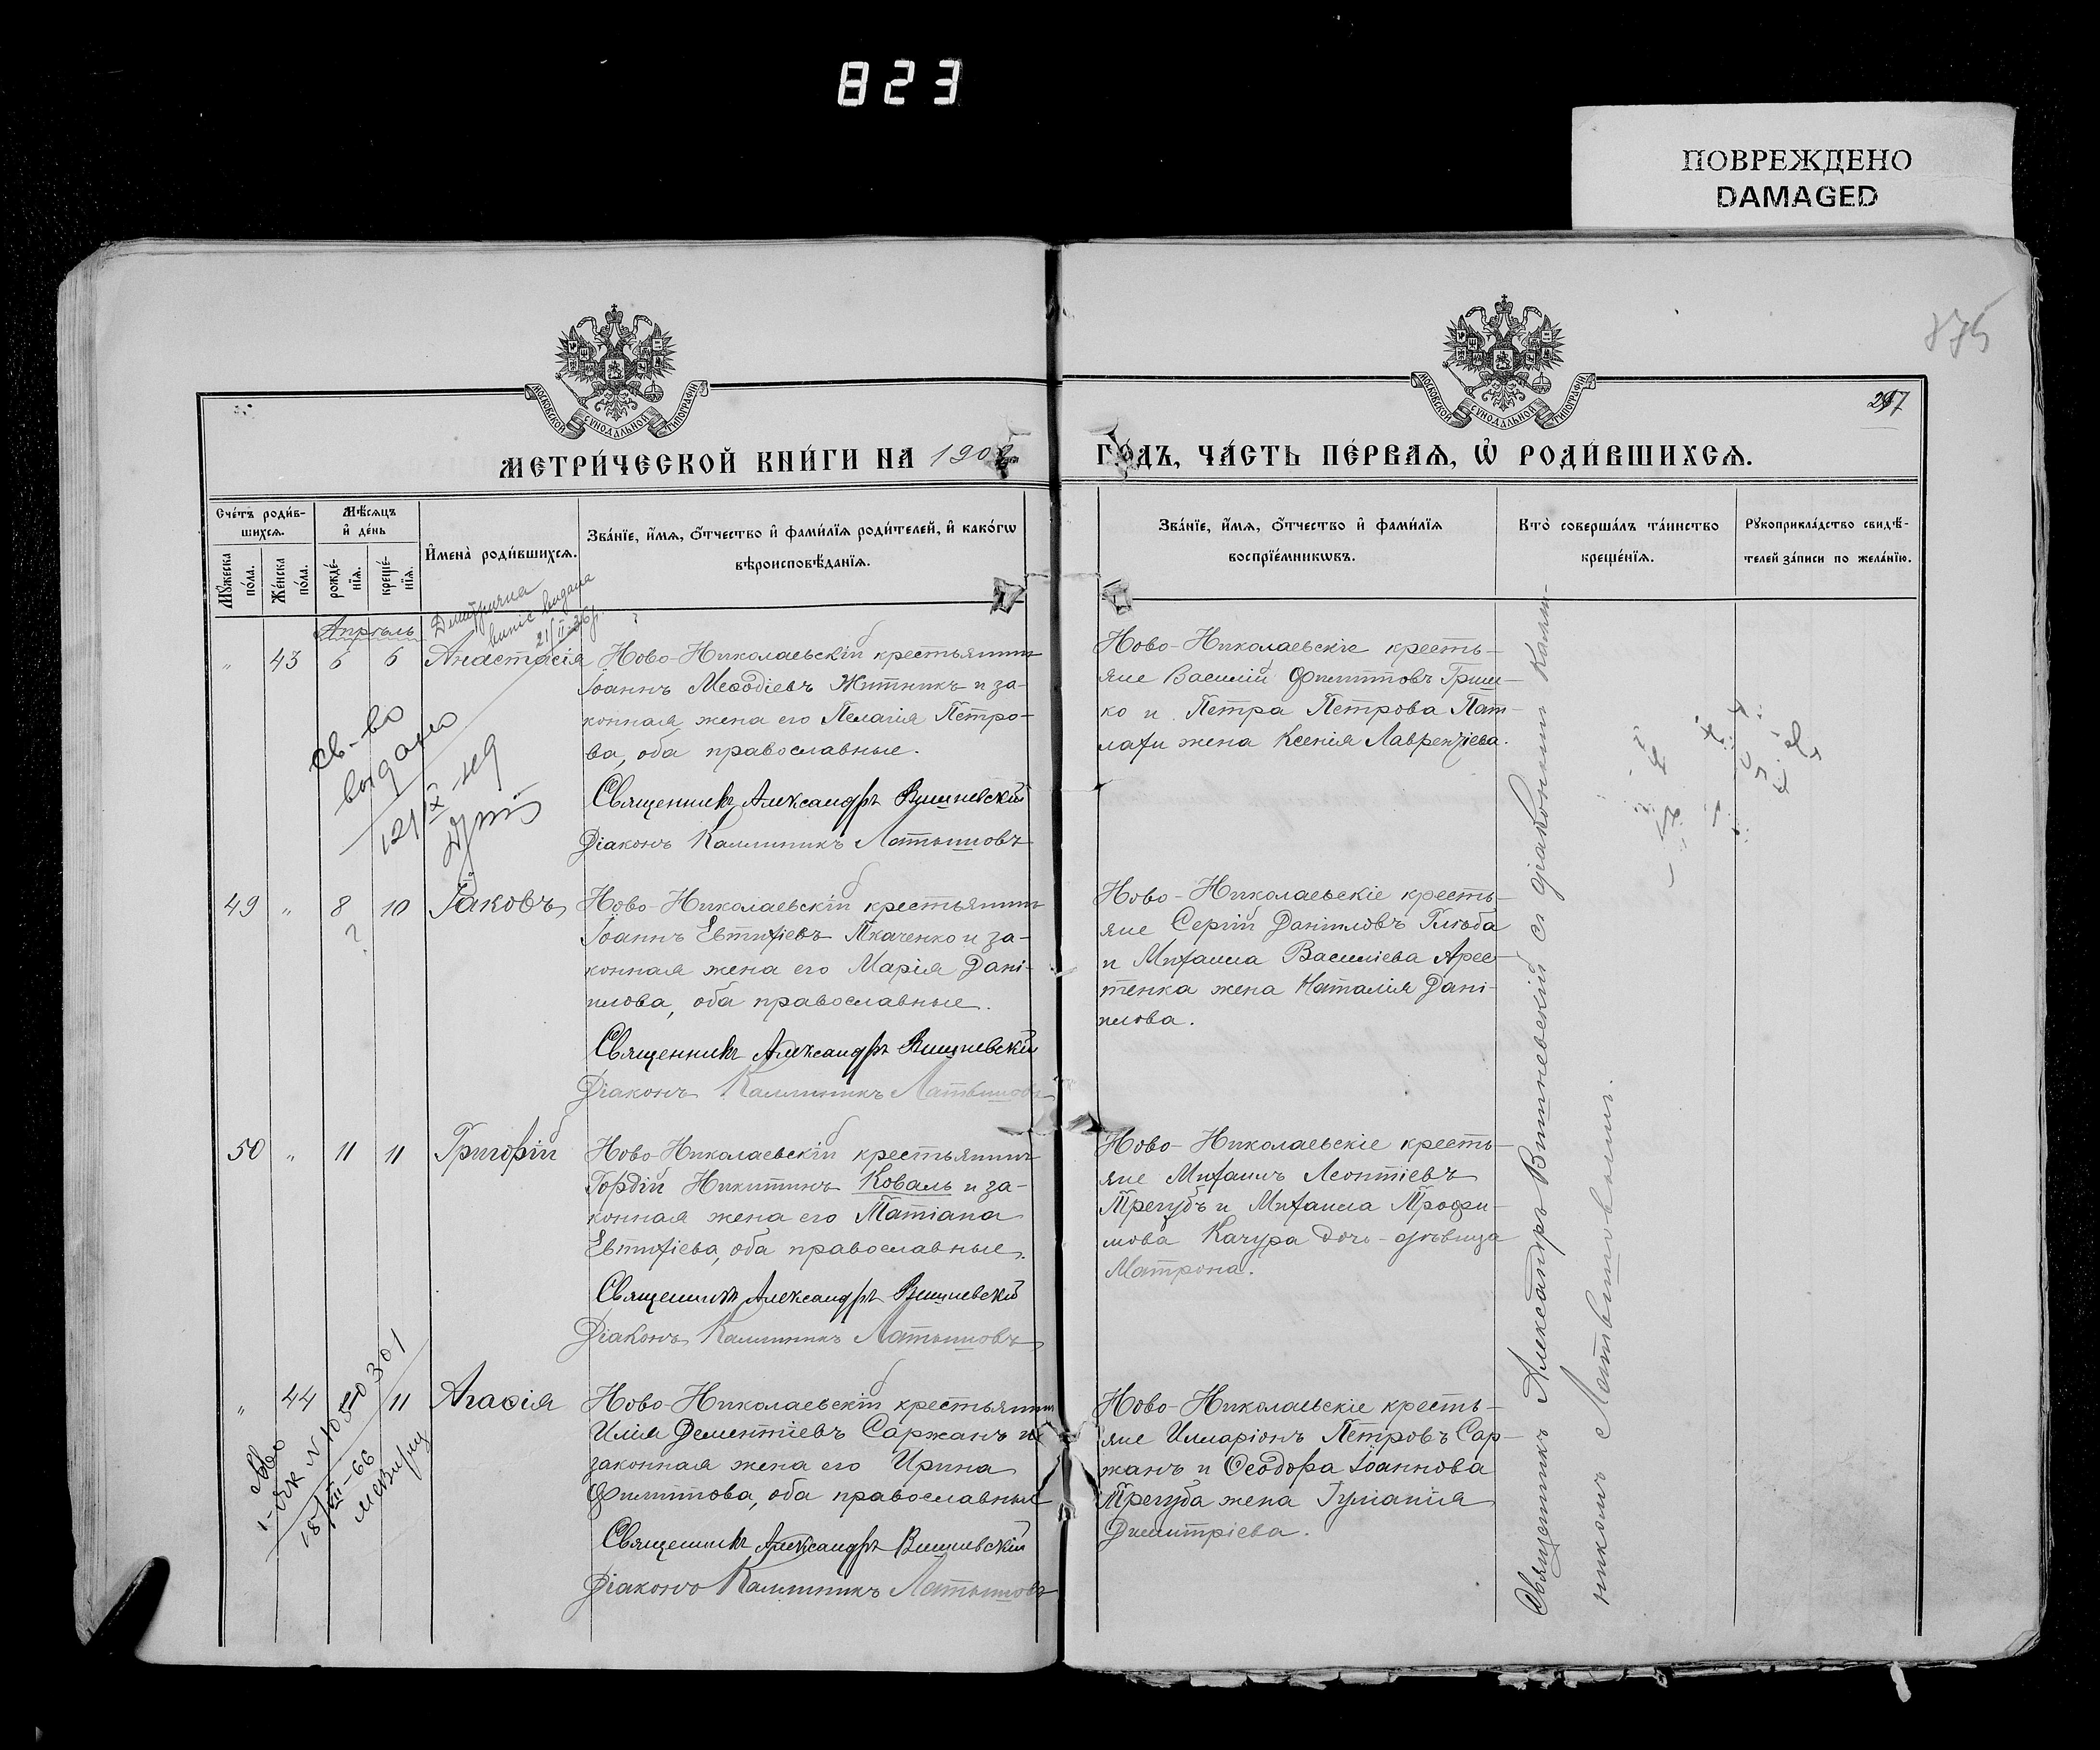 823
ПОВРЕЖДЕНО
DAMAGED
МОСКОВСКОЙ СѴНОДАЛЬНОЙ ТИПОГРАФІИ
МОСКОВСКОЙ СѴНОДАЛЬНОЙ ТИПОГРАФІИ
МЕТРИ́ЧЕСКОЙ КНИ́ГИ НА 190
ГО́ДЪ, ЧА́СТЬ ПЕ́РВАѦ, Ѡ҆ РОДИ́ВШИХСѦ.
Сче́тъ роди́в-
шихсѧ.
Мѣ́сѧцъ
и҆ де́нь
Мꙋ́жеска по́ла.
Же́нска по́ла.
рожде́-
нїѧ.
креще́-
нїѧ.
И҆мена̀ роди́вшихсѧ.
Зва́нїе, и҆́мѧ, ѻ҆́тчество и҆ фами́лїѧ роди́телей, и҆ како́гѡ
вѣроисповѣ́данїѧ.
Зва́нїе, и҆́мѧ, ѻ҆́тчество и҆ фами́лїѧ
воспрїе́мникѡвъ.
Кто̀ соверша́лъ та́инство
креще́нїѧ.
Рꙋкоприкла́дство свидѣ́-
телей за́писи по жела́нїю.
Апрѣль
" 43 6 6 Анастасія
Ново-Николаевскій крестьянинъ
Іоаннъ Меѳодіевъ Житникъ и за-
конная жена его Пелагія Петро-
ва, оба православные.
Священникъ Александръ Вишневскій
Діаконъ Каллиникъ Латышовъ
Ново-Николаевскіе кресть-
яне Василій Филипповъ Гриш-
ко и Петра Петрова Пат-
лахи жена Ксенія Лаврентіева.
св-во
выдано
49 " 8 10 Іаковъ
?
Ново-Николаевскій крестьянинъ
Іоаннъ Евтихіевъ Ткаченко и за-
конная жена его Марія Дані-
илова, оба православные.
Священникъ Александръ Вишневскій
Діаконъ Каллиникъ Латышовъ
Ново-Николаевскіе кресть-
яне Сергій Даніиловъ Глюба
и Михаила Василіева Арес-
тенка жена Наталія Дані-
илова.
50 " 11 11 Григорій
Ново-Николаевскій крестьянинъ
Гордій Никитинъ Коваль и за-
конная жена его Татіана
Евтихіева, оба православные.
Священникъ Александръ Вишневскій
Діаконъ Каллиникъ Латышовъ
Ново-Николаевскіе кресть-
яне Михаилъ Леонтіевъ
Трегубъ и Михаила Трофи-
мова Качура дочь-дѣвица
Матрона.
" 44 11 Агаѳія
Ново-Николаевскій крестьянинъ
Илія Дементіевъ Саржанъ и
законная жена его Ирина
Филиппова, оба православные
Священникъ Александръ Вишневскій
Діаконъ Каллиникъ Латышовъ
Ново-Николаевскіе кресть-
яне Илларіонъ Петровъ Сар-
жанъ и Ѳеодора Іоаннова
Трегуба жена Іуліанія
Димитріева.
Священникъ Александръ Вишневскій съ діакономъ Калли-
никомъ Латышовымъ.